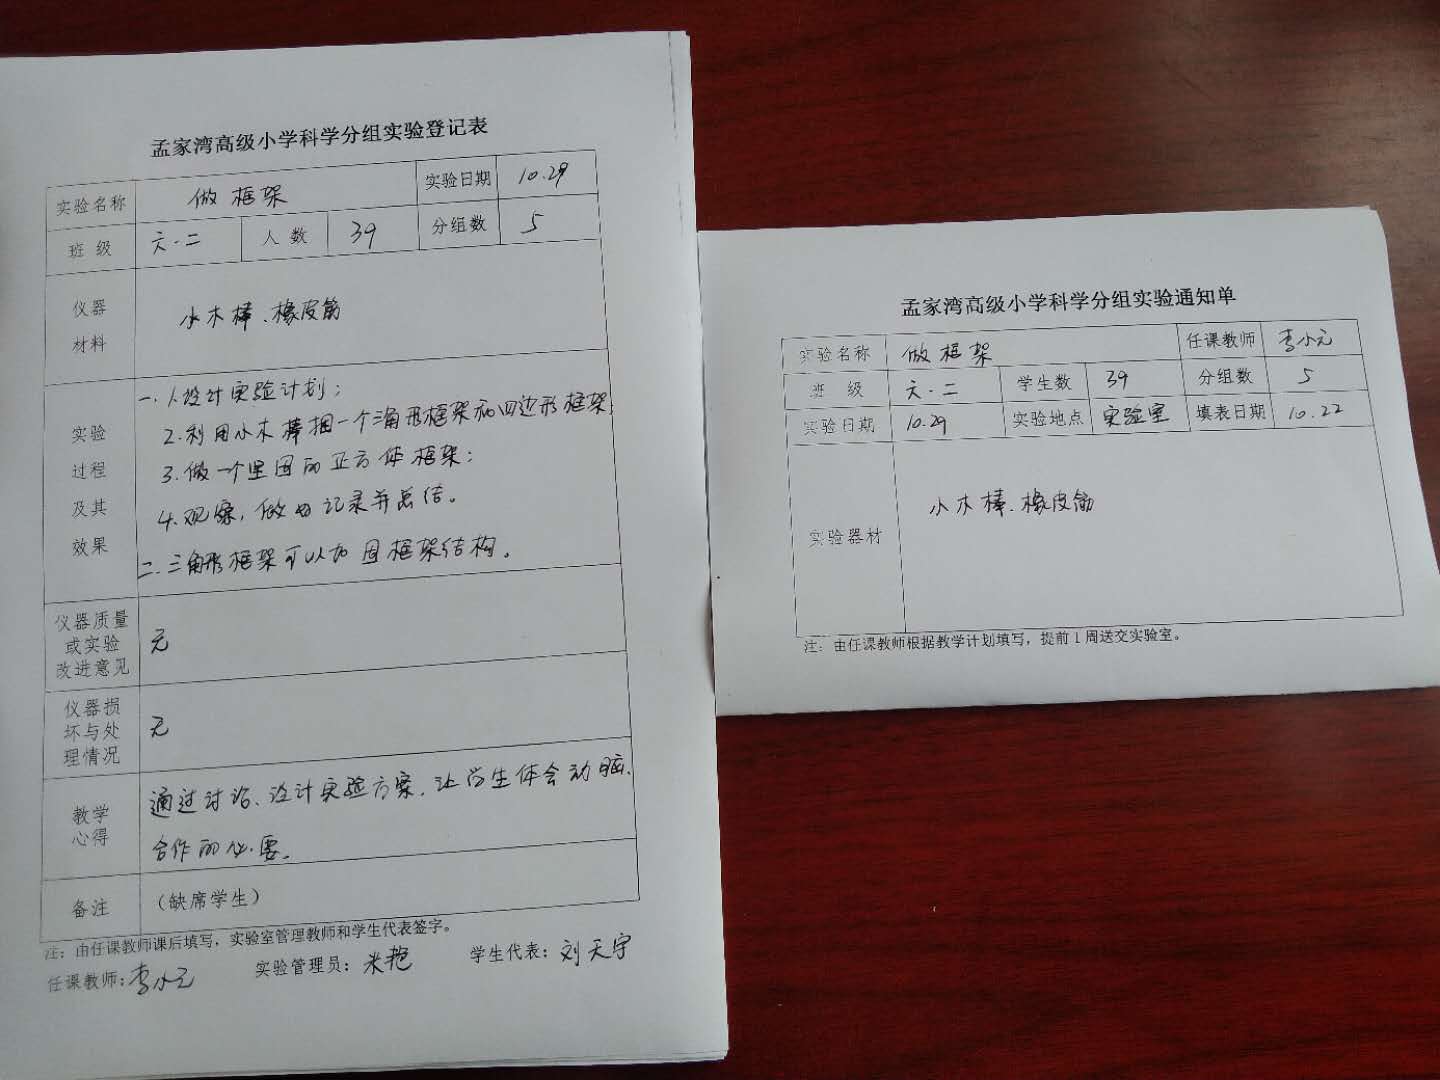 孟家湾高级小学科学分组实验登记表
实验名称 做框架 实验日期 10.29
班 级 六.二 人 数 39 分组数 5
仪器
材料
小木棒、橡皮筋
实验
过程
及其
效果
一.1.设计实验计划;
2.利用小木棒捆一个三角形框架和四边形框架;
3.做一个坚固的正方体框架;
4.观察,做好记录并总结。
二.三角形框架可以加固框架结构。
仪器质量
或实验
改进意见
无
仪器损
坏与处
理情况
无
教学
心得
通过讨论、设计实验方案,让学生体会动脑、
合作的必要。
备注 (缺席学生)
注:由任课教师课后填写,实验室管理教师和学生代表签字。
任课教师:李小元 实验管理员:米艳 学生代表:刘天宇
孟家湾高级小学科学分组实验通知单
实验名称 做框架 任课教师 李小元
班 级 六.二 学生数 39 分组数 5
实验日期 10.29 实验地点 实验室 填表日期 10.22
实验器材 小木棒、橡皮筋
注:由任课教师根据教学计划填写,提前1周送交实验室。